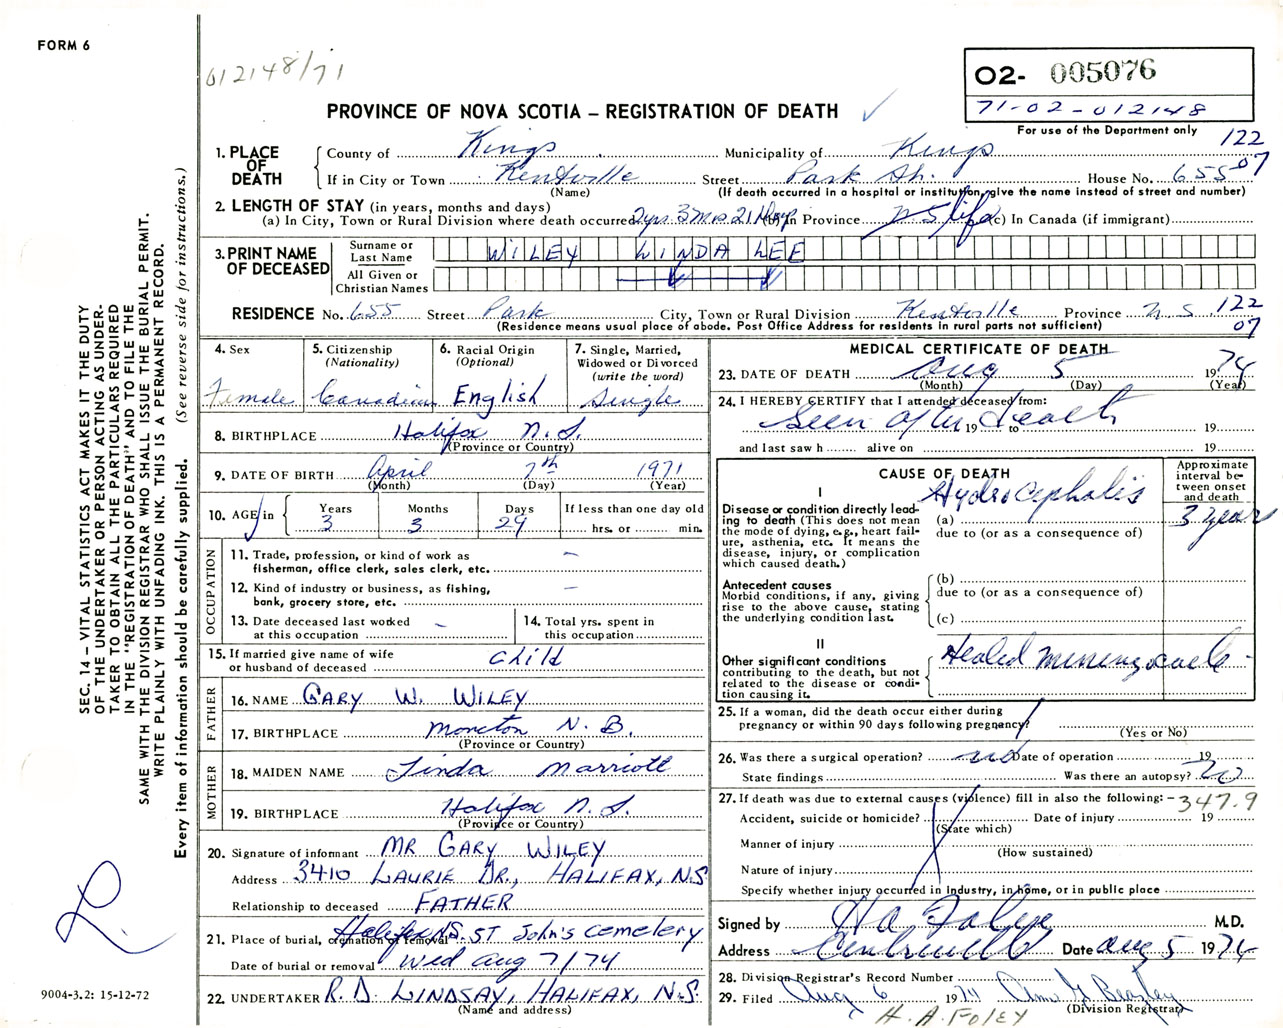 FORM 6
012148/71
O2- 005076
71-02-012148
For use of the Department only
PROVINCE OF NOVA SCOTIA – REGISTRATION OF DEATH
122
07
1. PLACE OF DEATH
County of Kings Municipality of Kings
If in City or Town Kentville Street Park St. House No. 655
(Name) (If death occurred in a hospital or institution, give the name instead of street and number)
2. LENGTH OF STAY (in years, months and days)
(a) In City, Town or Rural Division where death occurred 2yrs 3mos 21 days (b) In Province N S life (c) In Canada (if immigrant)
3. PRINT NAME OF DECEASED
Surname or Last Name WILEY LINDA LEE
All Given or Christian Names
RESIDENCE No. 655 Street Park City, Town or Rural Division Kentville Province N.S. 122
(Residence means usual place of abode. Post Office Address for residents in rural parts not sufficient) 07
4. Sex
Female
5. Citizenship (Nationality)
Canadian
6. Racial Origin (Optional)
English
7. Single, Married, Widowed or Divorced (write the word)
Single
8. BIRTHPLACE Halifax N.S.
(Province or Country)
9. DATE OF BIRTH April 7th 1971
(Month) (Day) (Year)
10. AGE in Years Months Days If less than one day old
3 3 29 hrs. or min.
OCCUPATION
11. Trade, profession, or kind of work as fisherman, office clerk, sales clerk, etc. –
12. Kind of industry or business, as fishing, bank, grocery store, etc. –
13. Date deceased last worked at this occupation –
14. Total yrs. spent in this occupation
15. If married give name of wife or husband of deceased child
FATHER
16. NAME GARY W. WILEY
17. BIRTHPLACE Moncton N.B.
(Province or Country)
MOTHER
18. MAIDEN NAME Linda Marriott
19. BIRTHPLACE Halifax N.S.
(Province or Country)
20. Signature of informant MR GARY WILEY
Address 3410 LAURIE DR., HALIFAX, N.S
Relationship to deceased FATHER
21. Place of burial, cremation or removal Halifax N.S. ST John's cemetery
Date of burial or removal Wed aug 7/74
22. UNDERTAKER R.D. LINDSAY, HALIFAX, N.S.
(Name and address)
MEDICAL CERTIFICATE OF DEATH
23. DATE OF DEATH Aug 5 1974
(Month) (Day) (Year)
24. I HEREBY CERTIFY that I attended deceased from:
Seen after death 19 to 19
and last saw h alive on 19
CAUSE OF DEATH
Approximate interval between onset and death
I
Disease or condition directly leading to death (This does not mean the mode of dying, e.g., heart failure, asthenia, etc. It means the disease, injury, or complication which caused death.)
(a) Hydrocephalis 3 years
due to (or as a consequence of)
Antecedent causes
Morbid conditions, if any, giving rise to the above cause, stating the underlying condition last.
(b)
due to (or as a consequence of)
(c)
II
Other significant conditions contributing to the death, but not related to the disease or condition causing it.
Healed meningocoele -
25. If a woman, did the death occur either during pregnancy or within 90 days following pregnancy?
(Yes or No)
26. Was there a surgical operation? no Date of operation 19
State findings Was there an autopsy? no
27. If death was due to external causes (violence) fill in also the following: - 347.9
Accident, suicide or homicide? Date of injury 19
(State which)
Manner of injury
(How sustained)
Nature of injury
Specify whether injury occurred in industry, in home, or in public place
Signed by H A Foley M.D.
Address Date Aug 5 1974
28. Division Registrar's Record Number
29. Filed Aug 6 1974
(Division Registrar)
H.A. FOLEY
SEC. 14 – VITAL STATISTICS ACT MAKES IT THE DUTY
OF THE UNDERTAKER OR PERSON ACTING AS UNDER-
TAKER TO OBTAIN ALL THE PARTICULARS REQUIRED
IN THE "REGISTRATION OF DEATH" AND TO FILE THE
SAME WITH THE DIVISION REGISTRAR WHO SHALL ISSUE THE BURIAL PERMIT.
WRITE PLAINLY WITH UNFADING INK. THIS IS A PERMANENT RECORD.
Every item of information should be carefully supplied. (See reverse side for instructions.)
9004-3.2: 15-12-72